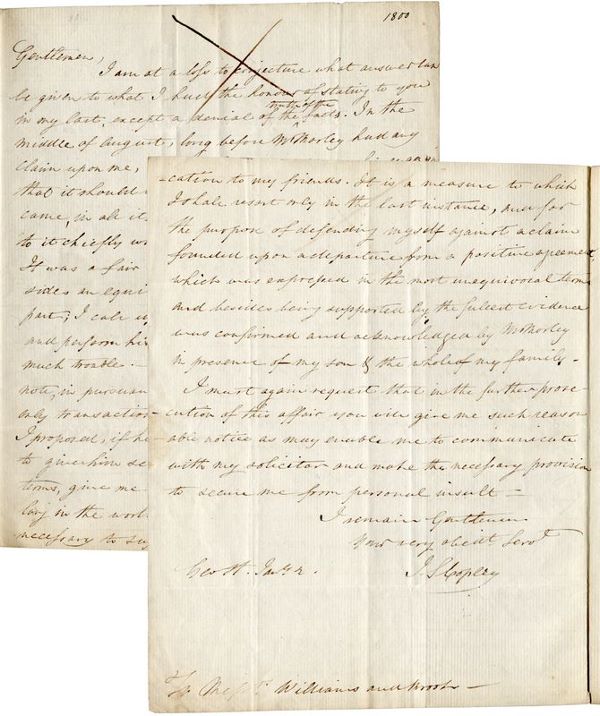 1800
Gentlemen,
I am at a loss to conjecture what answer can
be given to what I had the honour of stating to you
in my last, except a denial of the truth of the facts. In the
middle of August, long before Mr Morley had any
claim upon me,
that it should
came, in all it
to it chiefly
It was a fair
sides an equi
part; I call
and perform his
much trouble.
note, in pursuan
only transaction
I proposed, if he
to give him se
terms, give me
long in the
necessary to
-cation to my friends. It is a measure to which
I shall resort only in the last instance, and for
the purpose of defending myself against a claim
founded upon a departure from a positive agreement,
which was expressed in the most unequivocal terms
and besides being supported by the fullest evidence
was confirmed and acknowledged by Mr Morley
in presence of my son & the whole of my family -
I must again request that in the further prose-
cution of this affair you will give me such reason
able notice as may enable me to communicate
with my solicitor and make the necessary provision
to secure me from personal insult -
I remain Gentlemen
Your very obedt Servt
Geo St. Jany 2. J S Copley
To Messrs Williams and Brooks -